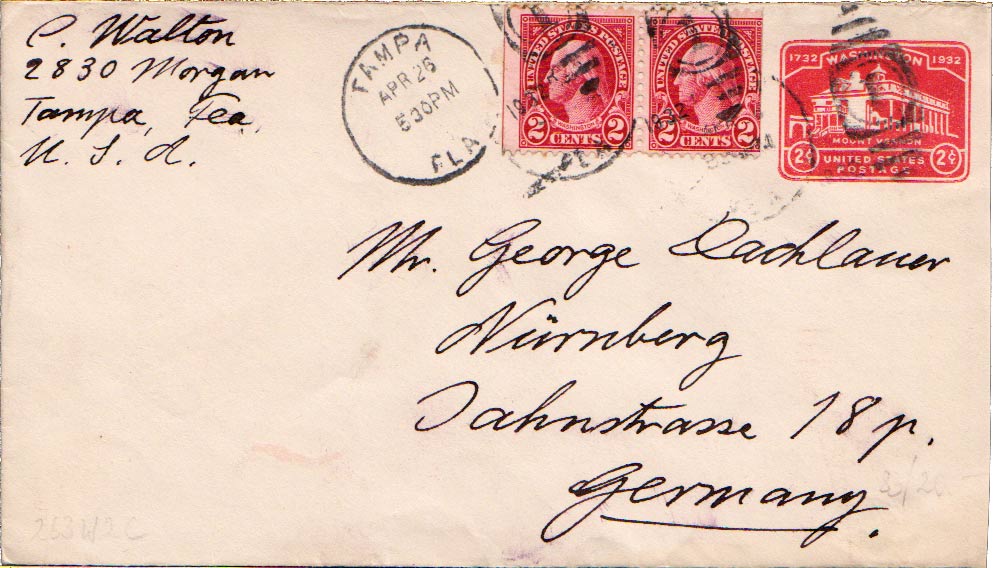 C. Walton
2830 Morgan
Tampa, Fla,
U. S. A.
TAMPA
APR 26
530PM
FLA
UNITED STATES POSTAGE
WASHINGTON
2 CENTS 2
1932
UNITED STATES POSTAGE
WASHINGTON
2 CENTS 2
1932
1732 WASHINGTON 1932
MOUNT VERNON
2¢ UNITED STATES 2¢
POSTAGE
Mr. George Lachlauer
Nürnberg
Jahnstrasse 18 p.
Germany.